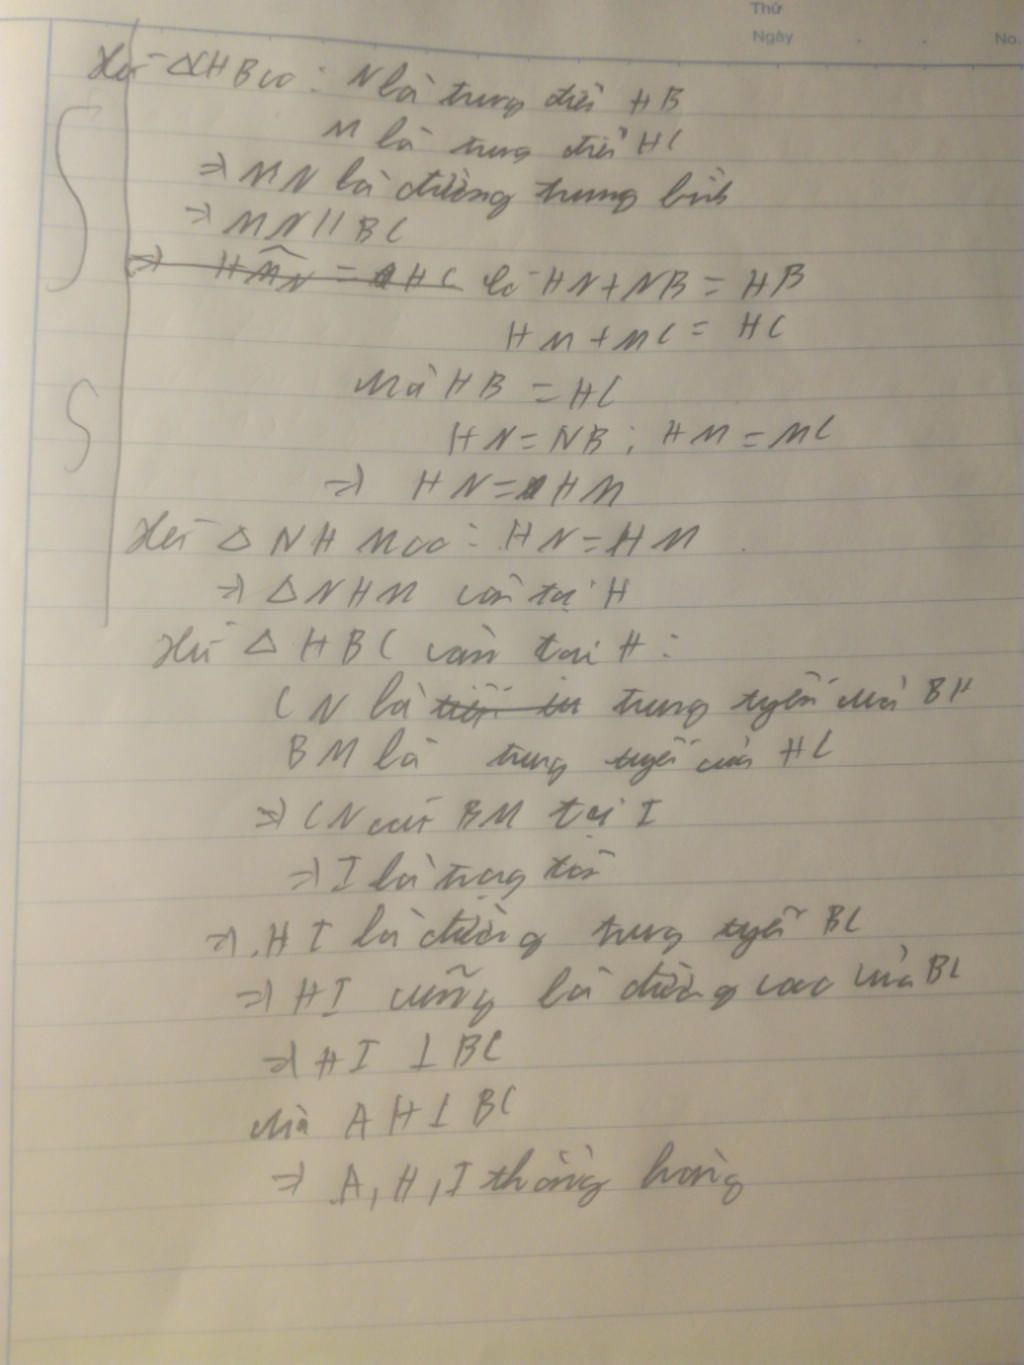 Thứ
Ngày . . No.
Xét ΔHBC có: N là trung điểm HB
M là trung điểm HC
=> MN là đường trung bình
=> MN // BC
Có HN + NB = HB
HM + MC = HC
Mà HB = HC
HN = NB ; HM = MC
=> HN = HM
Xét Δ NHM có: HN = HM
=> ΔNHM cân tại H
Xét Δ HBC cân tại H:
CN là trung tuyến của BH
BM là trung tuyến của HC
=> CN cắt BM tại I
=> I là trọng tâm
=> HI là đường trung tuyến BC
=> HI cũng là đường cao của BC
=> HI ⊥ BC
Mà AH ⊥ BC
=> A, H, I thẳng hàng